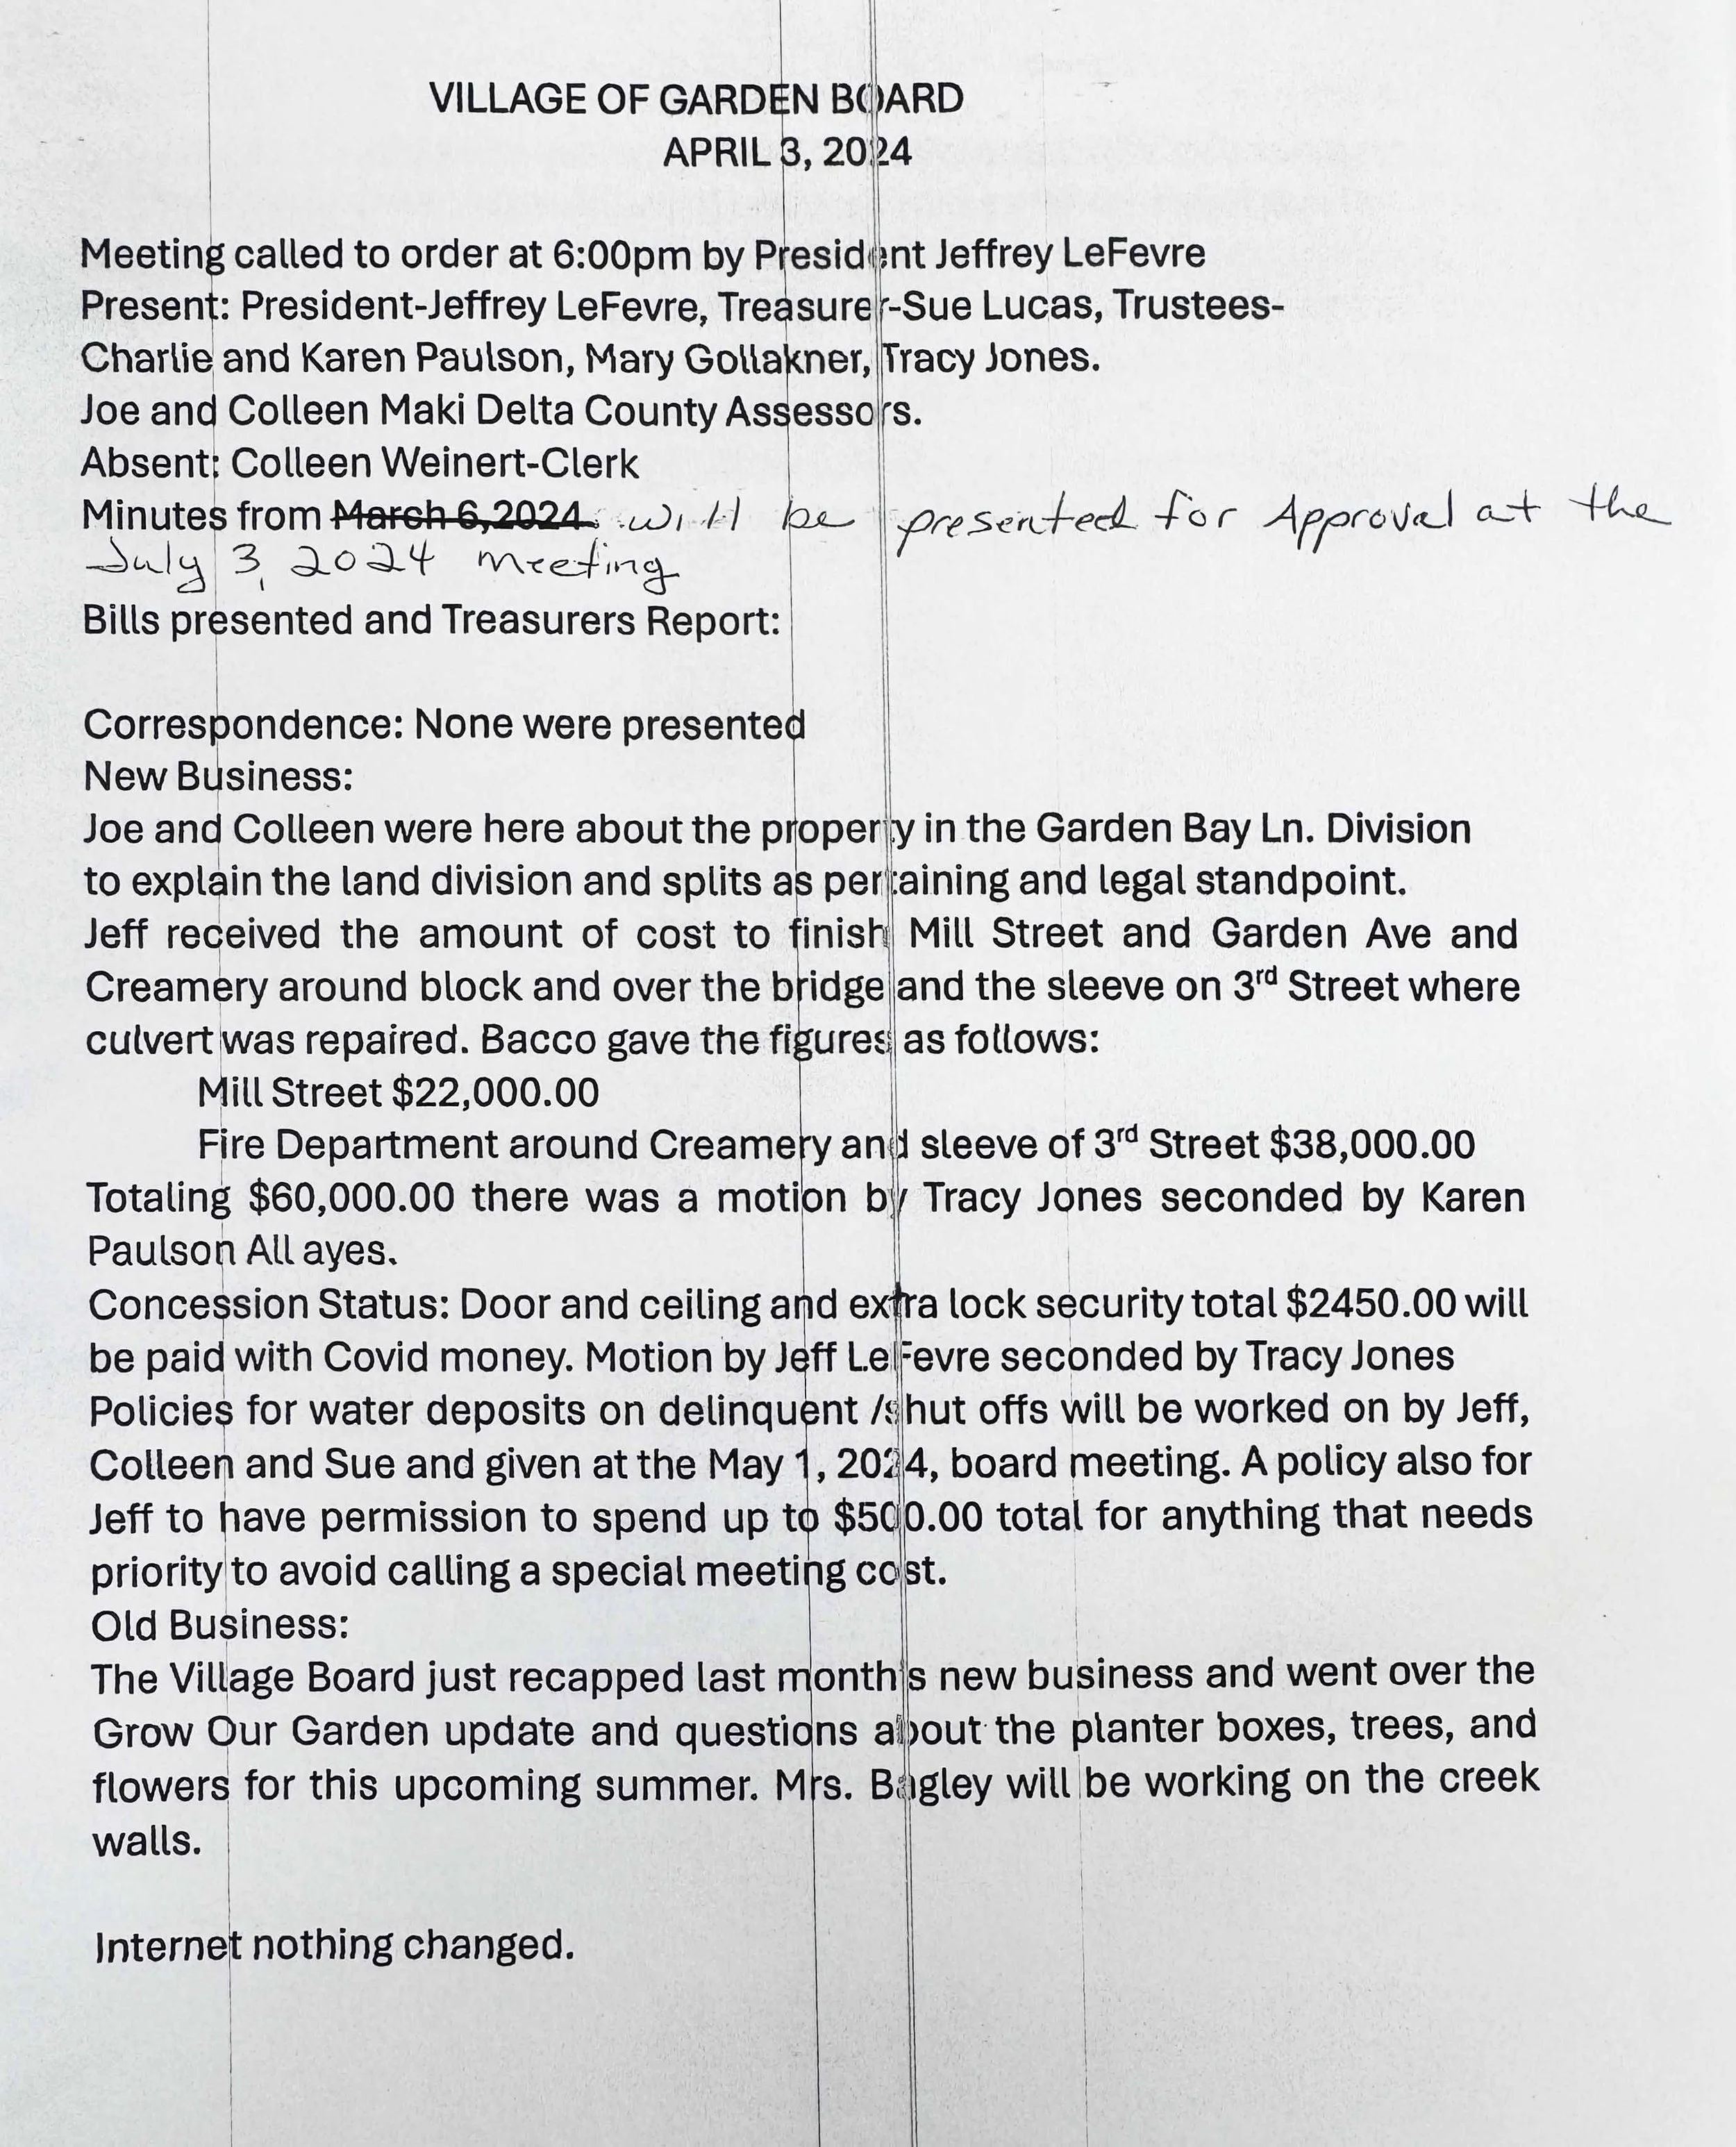 VILLAGE OF GARDEN BOARD
APRIL 3, 2024
Meeting called to order at 6:00pm by President Jeffrey LeFevre
Present: President-Jeffrey LeFevre, Treasurer-Sue Lucas, Trustees-
Charlie and Karen Paulson, Mary Gollakner, Tracy Jones.
Joe and Colleen Maki Delta County Assessors.
Absent: Colleen Weinert-Clerk
Minutes from March 6,2024. will be presented for Approval at the
July 3, 2024 meeting
Bills presented and Treasurers Report:
Correspondence: None were presented
New Business:
Joe and Colleen were here about the property in the Garden Bay Ln. Division
to explain the land division and splits as pertaining and legal standpoint.
Jeff received the amount of cost to finish Mill Street and Garden Ave and
Creamery around block and over the bridge and the sleeve on 3rd Street where
culvert was repaired. Bacco gave the figures as follows:
Mill Street $22,000.00
Fire Department around Creamery and sleeve of 3rd Street $38,000.00
Totaling $60,000.00 there was a motion by Tracy Jones seconded by Karen
Paulson All ayes.
Concession Status: Door and ceiling and extra lock security total $2450.00 will
be paid with Covid money. Motion by Jeff LeFevre seconded by Tracy Jones
Policies for water deposits on delinquent /shut offs will be worked on by Jeff,
Colleen and Sue and given at the May 1, 2024, board meeting. A policy also for
Jeff to have permission to spend up to $500.00 total for anything that needs
priority to avoid calling a special meeting cost.
Old Business:
The Village Board just recapped last month's new business and went over the
Grow Our Garden update and questions about the planter boxes, trees, and
flowers for this upcoming summer. Mrs. Bagley will be working on the creek
walls.
Internet nothing changed.